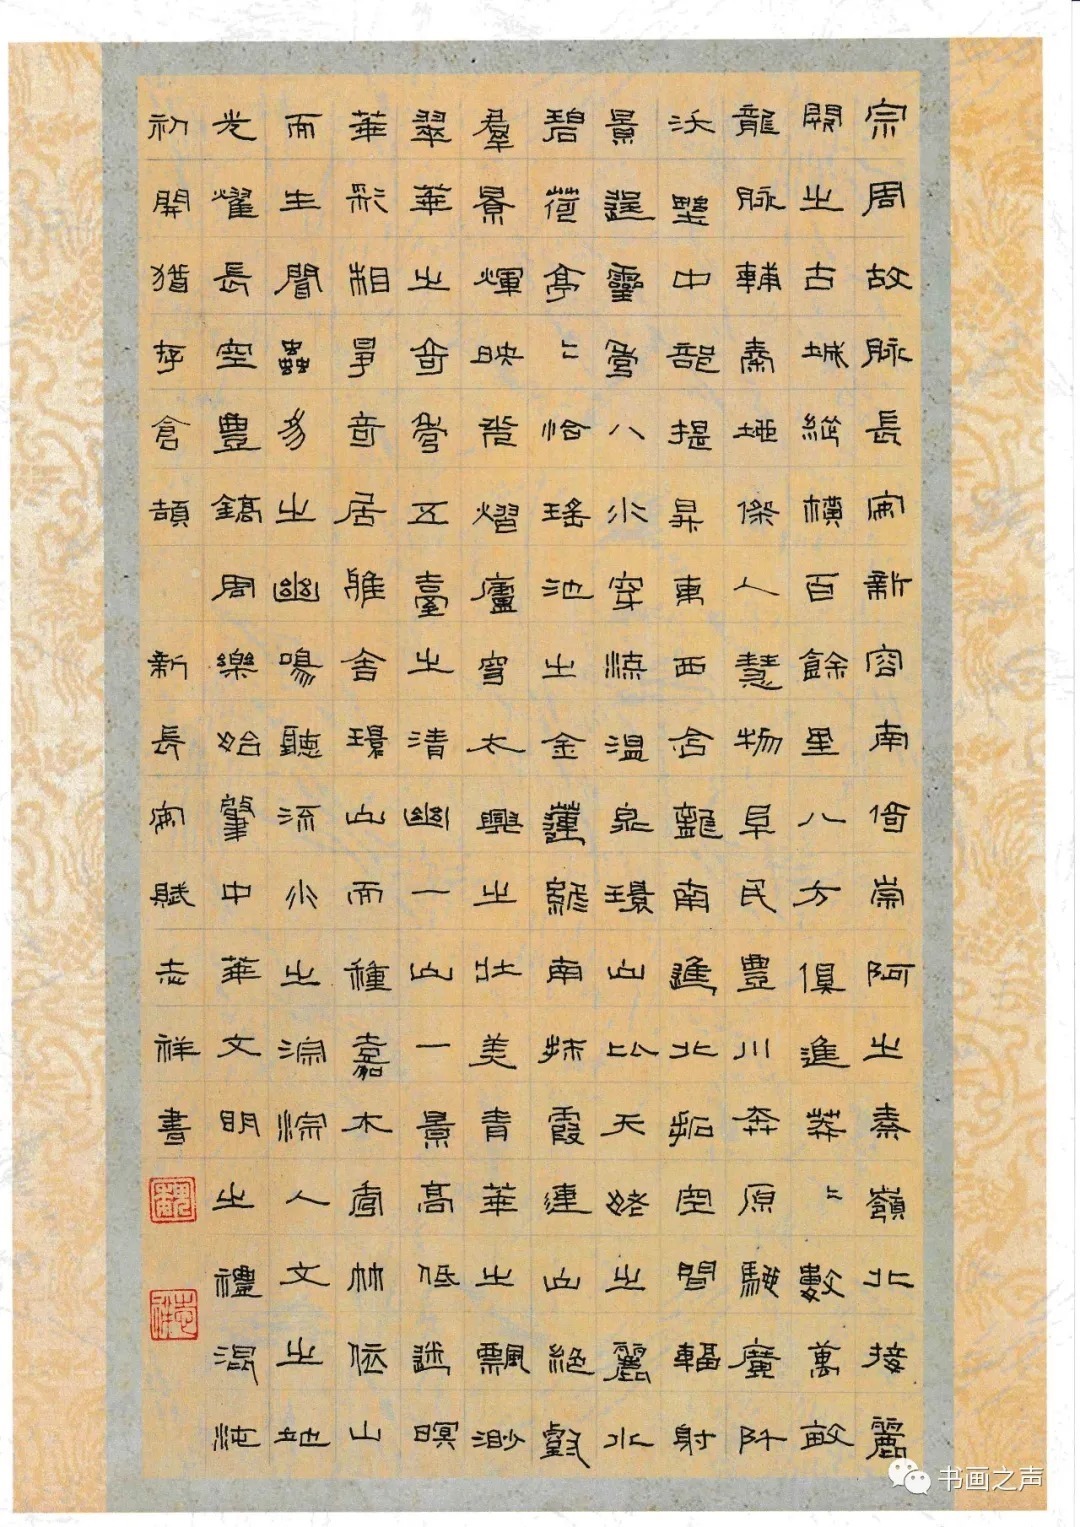 宗周故脉長安新容南倚崇阿之秦嶺北接麗
闕之古城縱橫百餘里八方俱進莽〻數萬畝
龍脉輔秦地傑人慧物阜民豐川奔原騁廣阡
沃墅中部提昇東西龍南進北拓空間輻射
景逞靈秀八水穿流溫泉環山比天姥之麗水
碧荷亭〻恰瑤池之金蓮終南抹霞連山絕壑
羣景輝映飛熠廬穹太興之壯美青華之飄渺
翠華之奇秀五臺之清幽一山一景高低迷暝
華彩相爭奇居雅舍環山而種嘉木喬林依山
而生聞蟲豸之幽鳴聽流水之淙淙人文之地
光耀長空豐鎬周樂始肇中華文明之禮混沌
初開猶存倉頡 新長安賦志祥書
志祥
书画之声